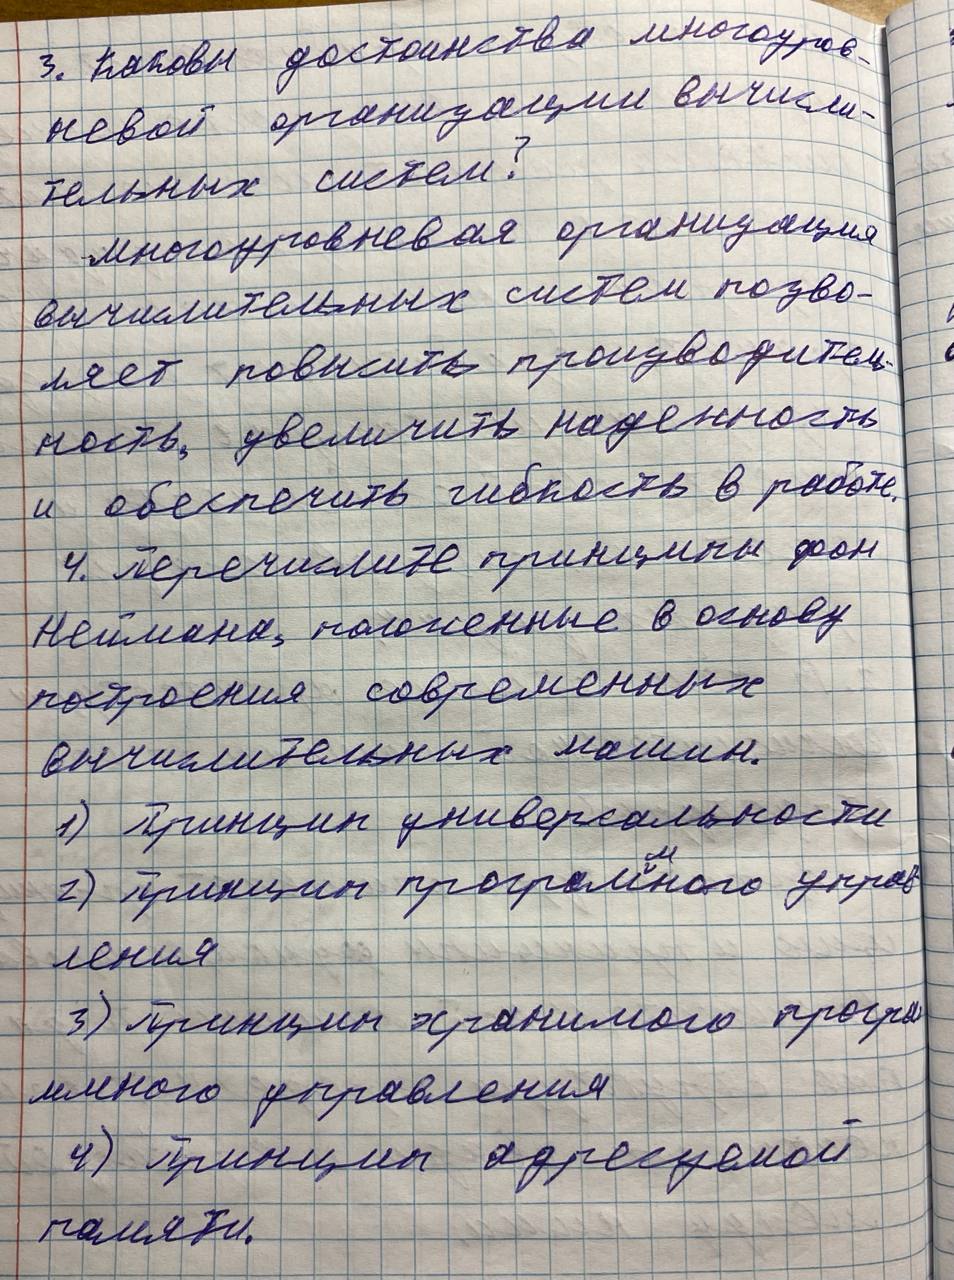 3. Каковы достоинства многоуров-
невой организации вычисли-
тельных систем?
многоуровневая организация
вычислительных систем позво-
ляет повысить производитель-
ность, увеличить надежность
и обеспечить гибкость в работе.
4. Перечислите принципы фон
Неймана, положенные в основу
построения современных
вычислительных машин.
1) Принцип универсальности
2) Принцип программного управ
ления
3) Принцип хранимого програ
ммного управления
4) Принцип адресуемой
памяти.